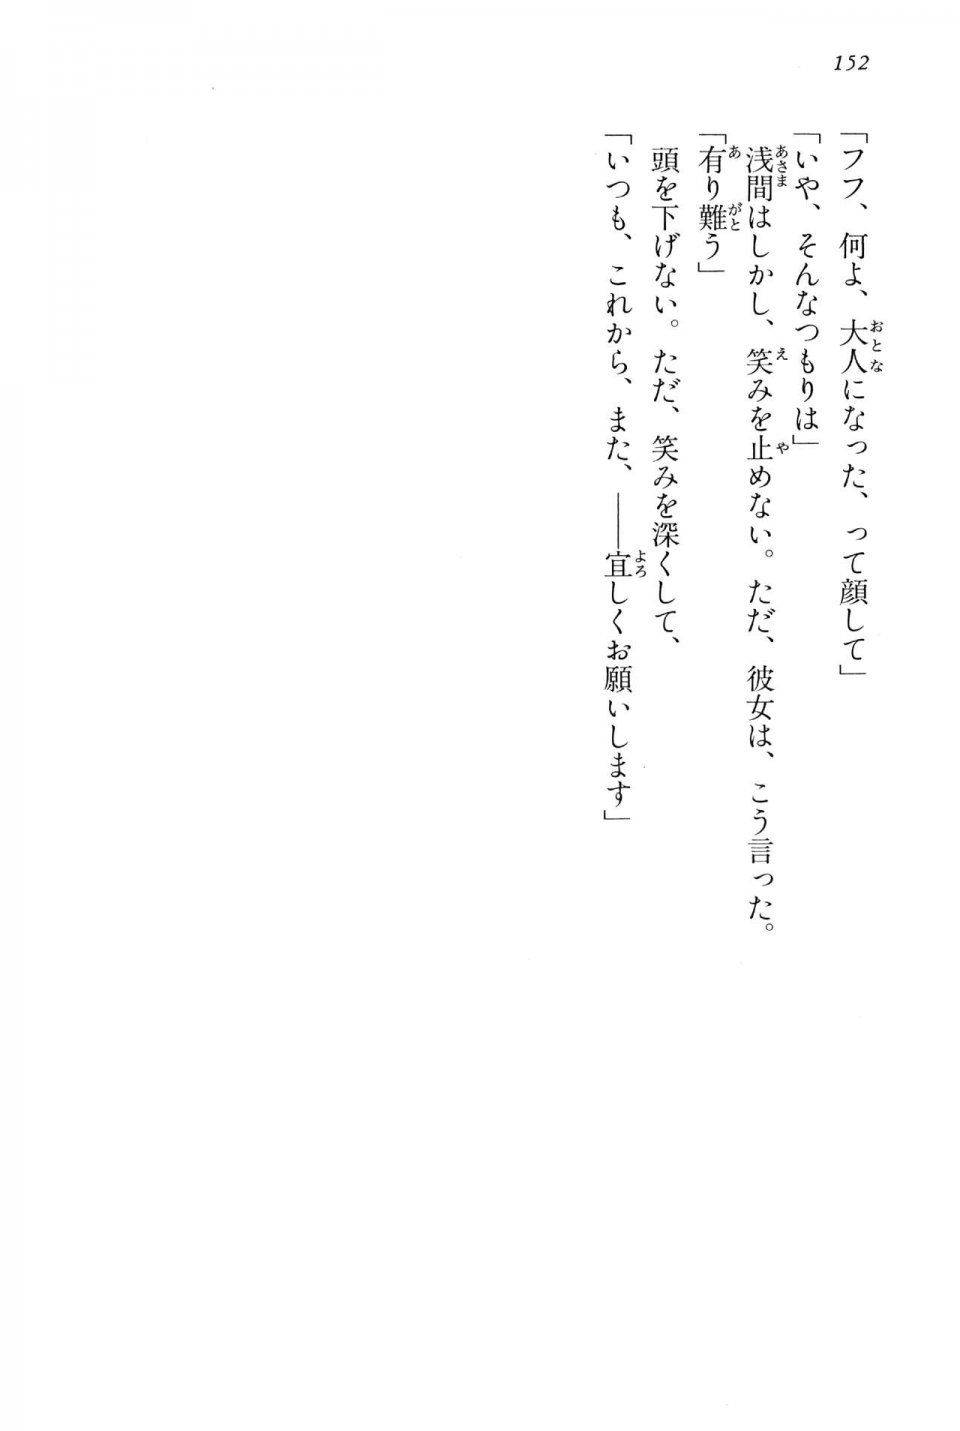 152
「フフ、何よ、大人になった、って顔して」
「いや、そんなつもりは」
浅間はしかし、笑みを止めない。ただ、彼女は、こう言った。
「有り難う」
頭を下げない。ただ、笑みを深くして、
「いつも、これから、また、――宜しくお願いします」